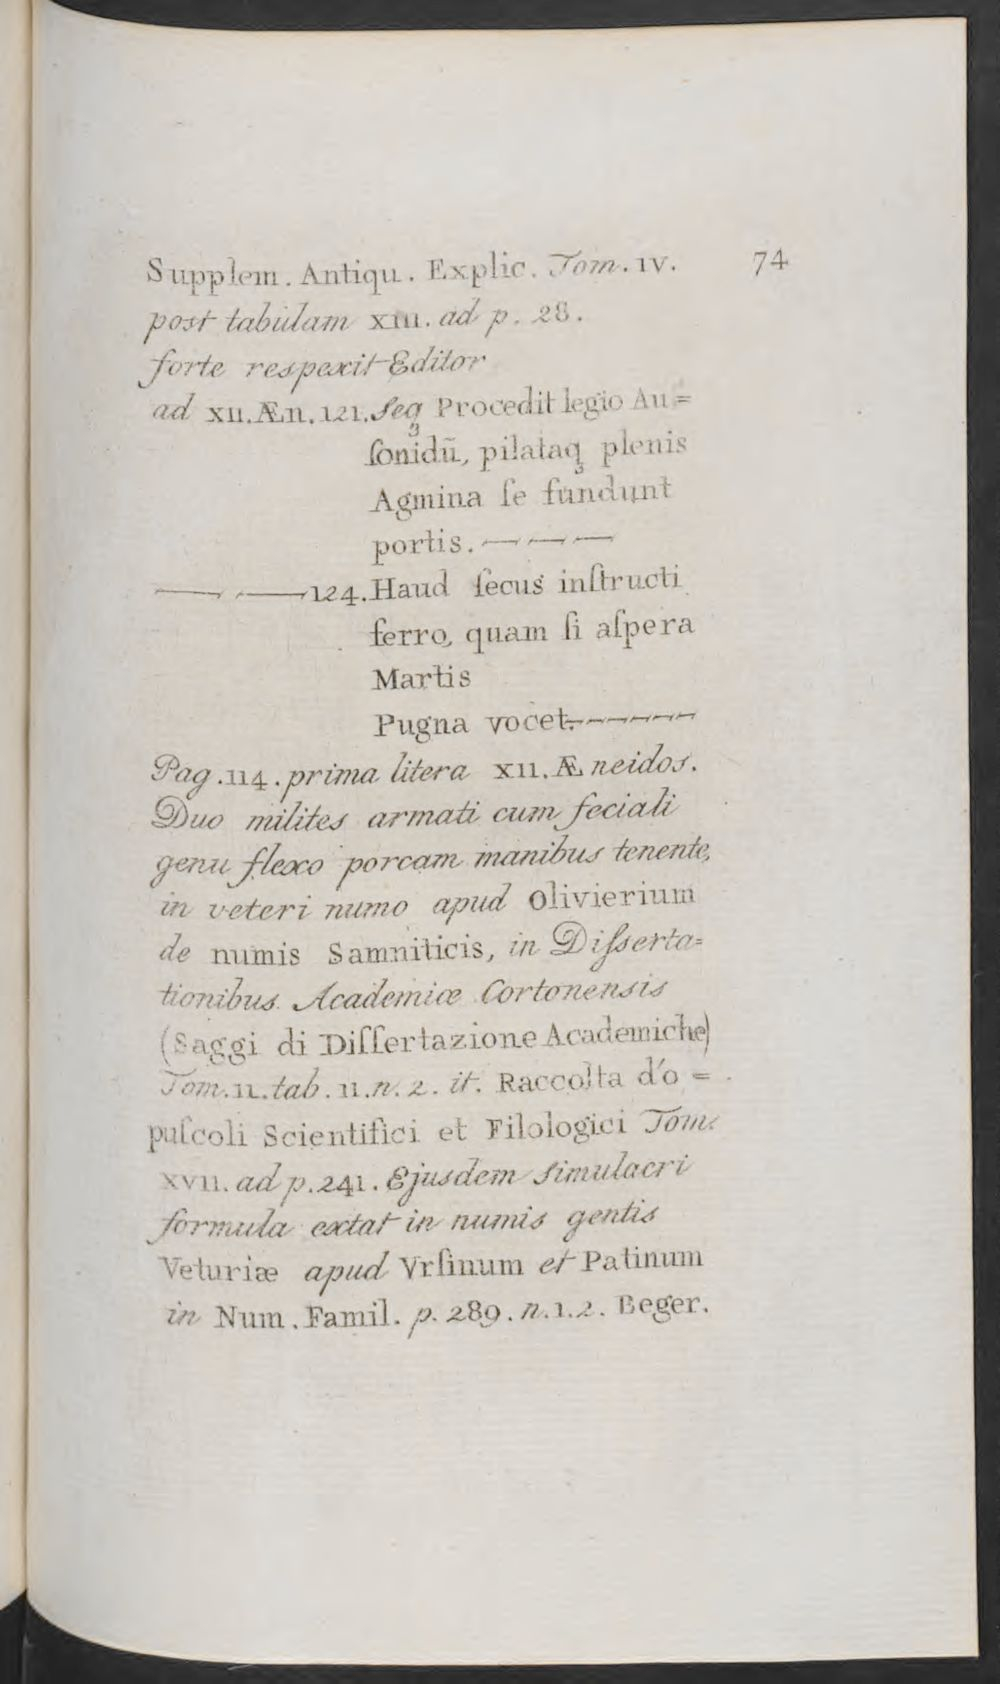 Supplem. Antiqu. Explic. Tom. IV. 74
post tabulam XIII. ad p. 28.
forte respexit Editor
ad XII. Æn. 121. seqʒ Procedit legio Au=
ſonidū, pilataqʒ plenis
Agmina ſe fundunt
portis. — — —
— — 124. Haud ſecus inſtructi
ferro, quam ſi aſpera
Martis
Pugna vocet. — — — — — —
Pag. 114. prima litera XII. Æneidos.
Duo milites armati cum feciali
genu flexo porcam manibus tenente,
in veteri numo apud Olivierium
de numis Samniticis, in Diſserta=
tionibus Academiæ Cortonensis
(Saggi di Diſſertazione Academiche)
Tom. II. tab. II. n. 2. it. Raccolta d'o=
puſcoli Scientifici et Filologici Tom.
XVII. ad p. 241. Ejusdem simulacri
formula extat in numis gentis
Veturiæ apud Vrſinum et Patinum
in Num. Famil. p. 289. n. 1. 2. Beger.